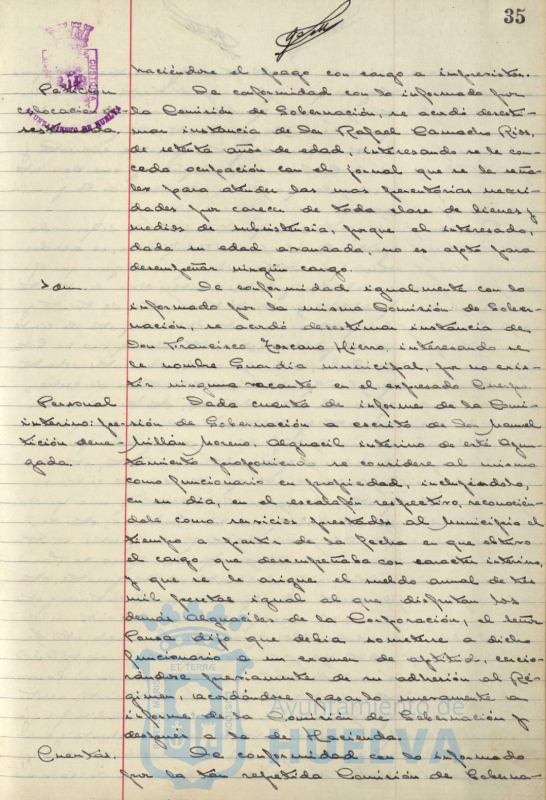 35
haciéndose el pago con cargo a imprevistos.
Petición De conformidad con lo informado por
colocación de- la Comisión de Gobernación, se acordó desesti-
sestimada. mar instancia de Don Rafael Camacho Rios,
de setenta años de edad, interesando se le con-
ceda ocupación con el jornal que se le seña-
le para atender las mas perentorias necesi-
dades por carecer de toda clase de bienes y
medios de subsistencia, porque el interesado,
dada su edad avanzada, no es apto para
desempeñar ningún cargo.
Idem. De conformidad igualmente con lo
informado por la misma Comisión de Gober-
nación, se acordó desestimar instancia de
Don Francisco Toscano Hierro, interesando se
le nombre Guardia municipal, por no exis-
tir ninguna vacante en el expresado Cuerpo.
Personal Dada cuenta de informe de la Comi-
interino: pe- sión de Gobernación a escrito de Don Manuel
tición dene- Millán Moreno, Alguacil interino de este Ayun-
gada. tamiento proponiendo se considere al mismo
como funcionario en propiedad, incluyéndolo,
en su dia, en el escalafón respectivo, reconocién-
dole como servicios prestados al Municipio el
tiempo a partir de la fecha en que obtuvo
el cargo que desempeñaba con caracter interino,
y que se le asigne el sueldo anual de tres
mil pesetas igual al que disfrutan los
demás Alguaciles de la Corporación, el señor
Pousa dijo que debia someterse a dicho
funcionario a un examen de aptitud, cercio-
rándose previamente de su adhesión al Ré-
gimen, acordándose pasarlo nuevamente a
informe de la Comisión de Gobernación y
después a la de Hacienda.
Cuentas. De conformidad con lo informado
por la tan repetida Comisión de Goberna-
AYUNTAMIENTO DE HUELVA
CUSTODIA
ET TERRAE
Ayuntamiento de
HUELVA